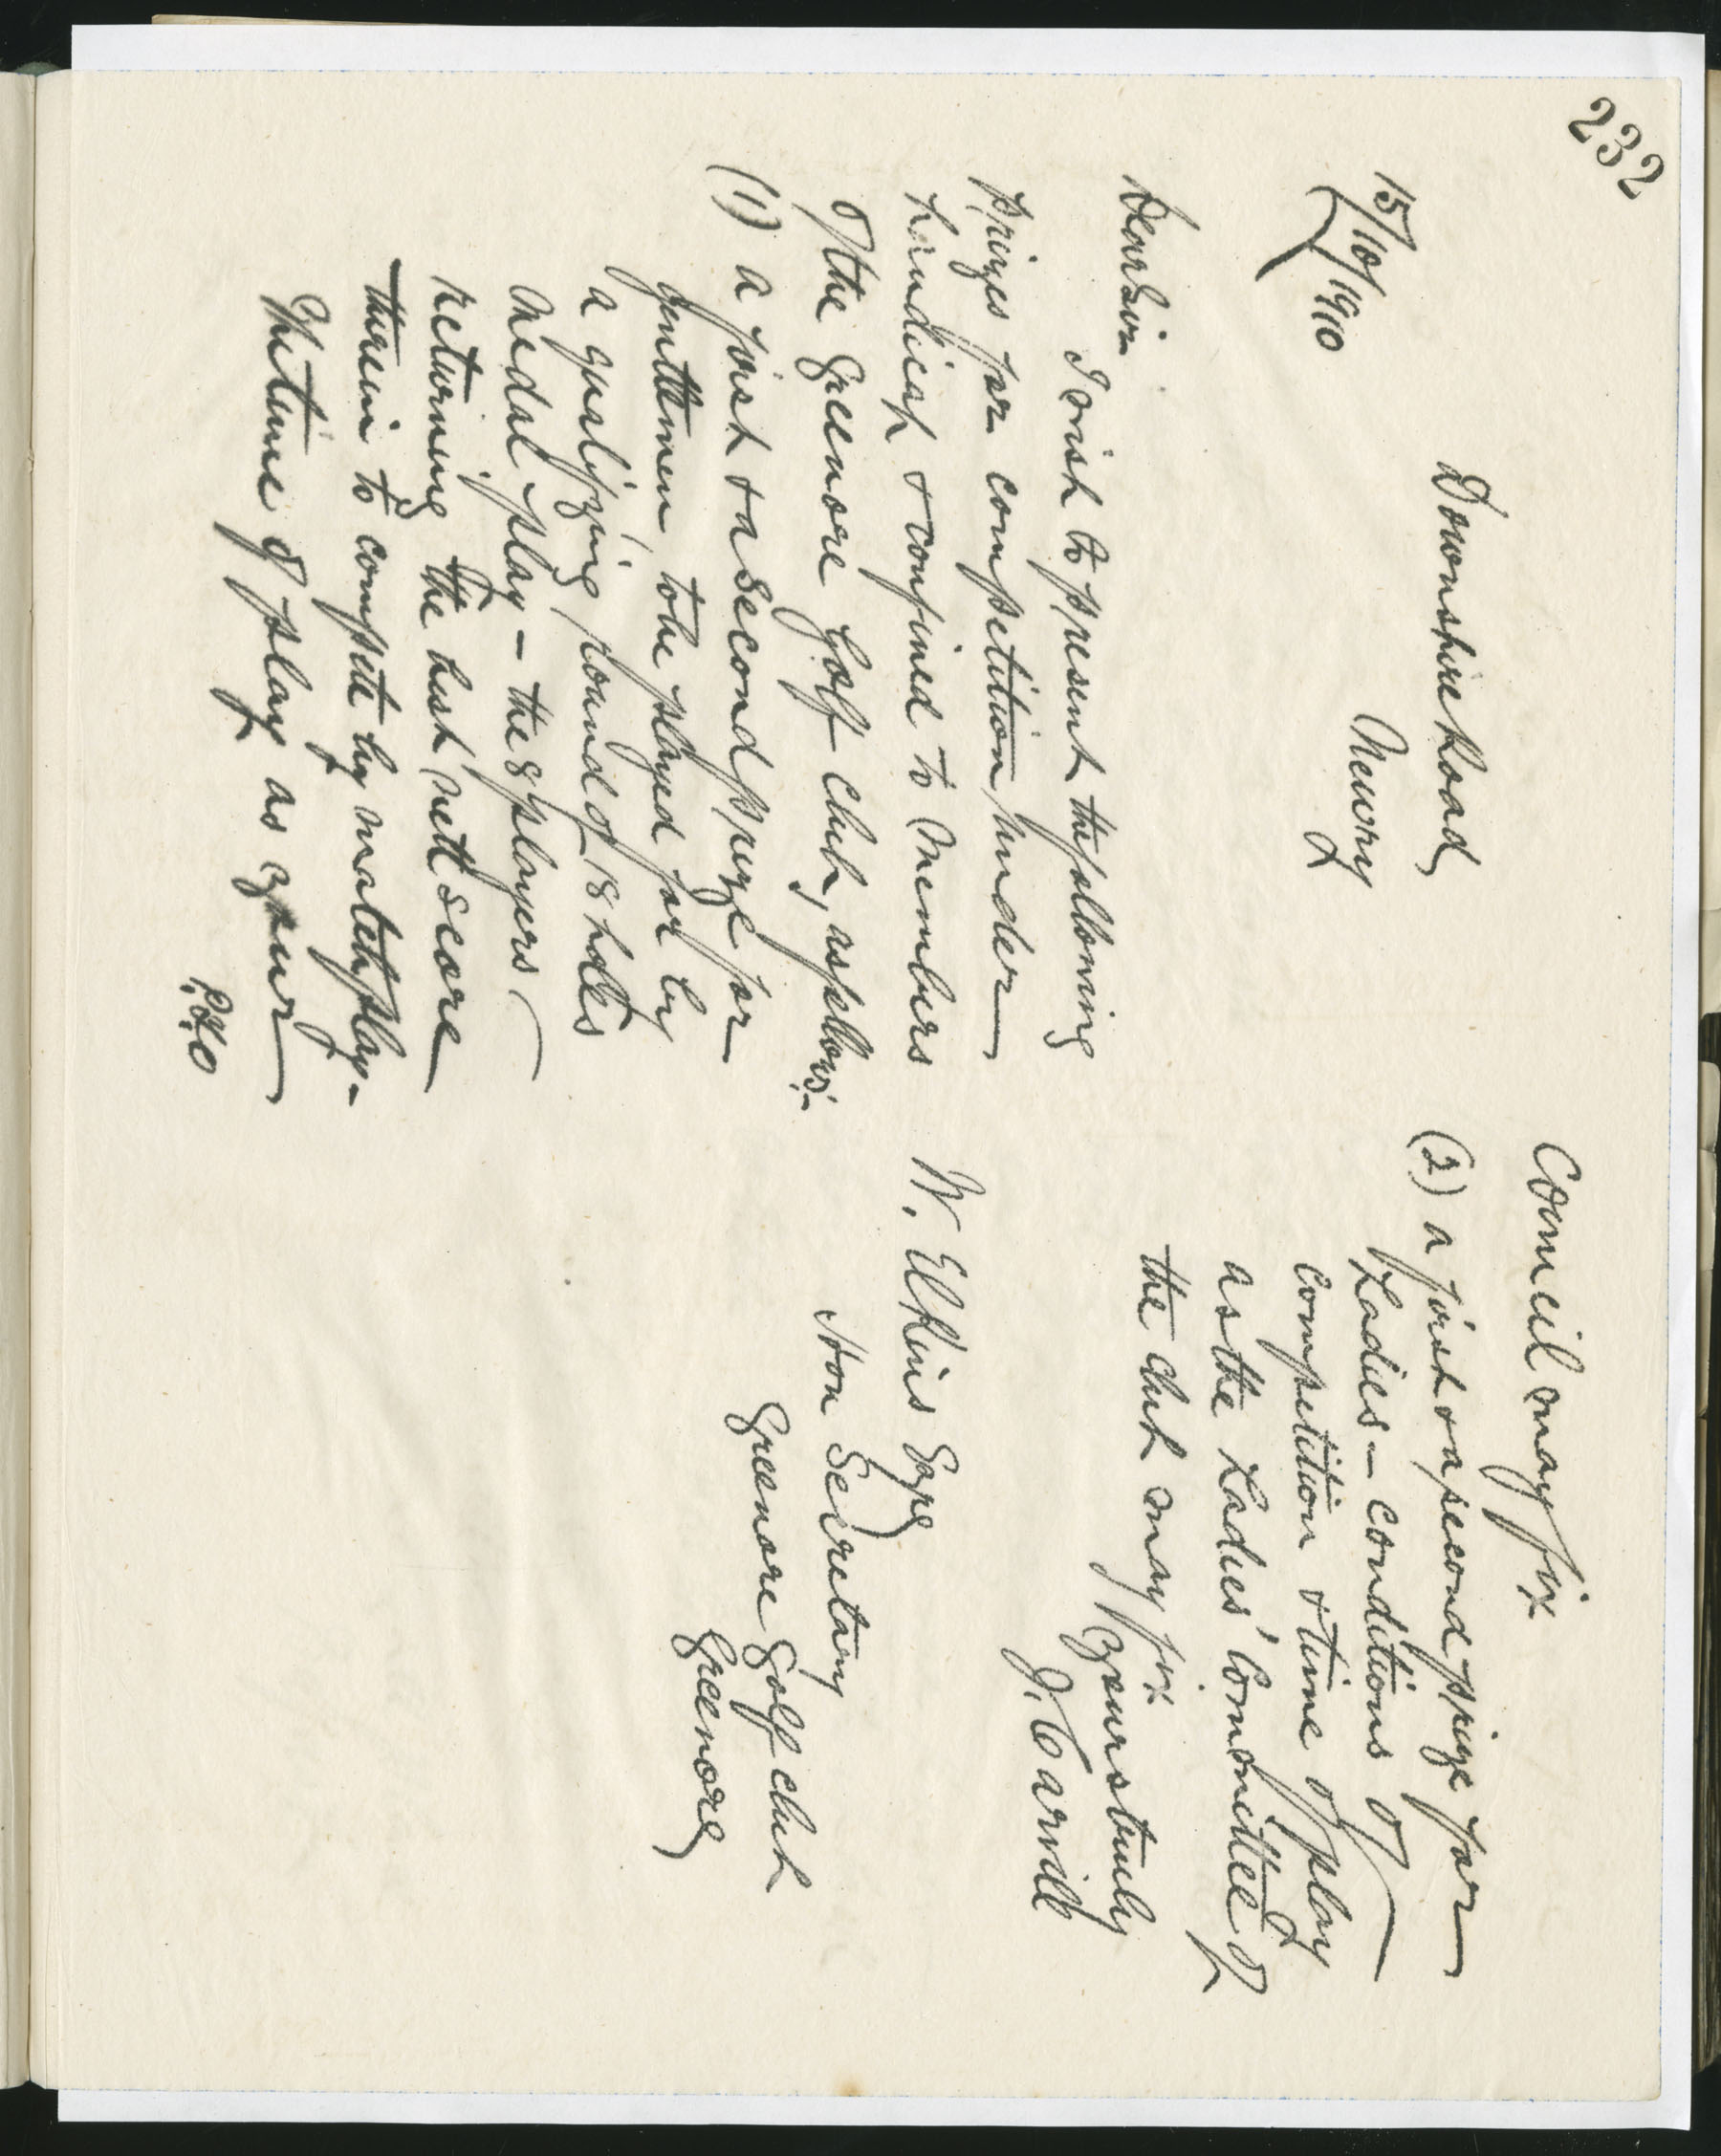 232
Downshire Road
Newry
15/10/1910
Dear Sir
I wish to present the following
prizes for competition under
handicap & confined to members
of the Greenore Golf Club, as follows:-
(1) a first & a second prize for
gentlemen to be played for by
a qualifying round of 18 holes
medal play - the 8 players
returning the best nett score
therein to compete by match play -
The time of play as your
P.T.O
Council may fix
(2) a first & a second prize for
Ladies - conditions of
competition & time of play
as the Ladies' Committee of
the club may fix
Yours truly
J. Carvill
W. Elkins Esqre
Hon Secretary
Greenore Golf Club
Greenore